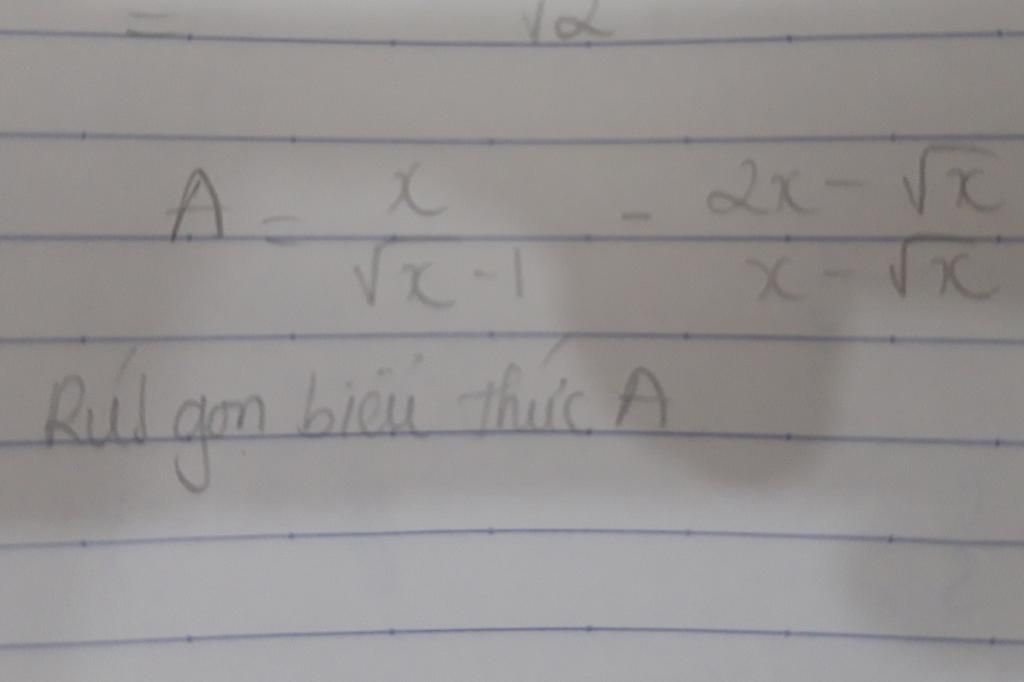 = √2
A = x/(√x - 1) - (2x - √x)/(x - √x)
Rút gọn biểu thức A